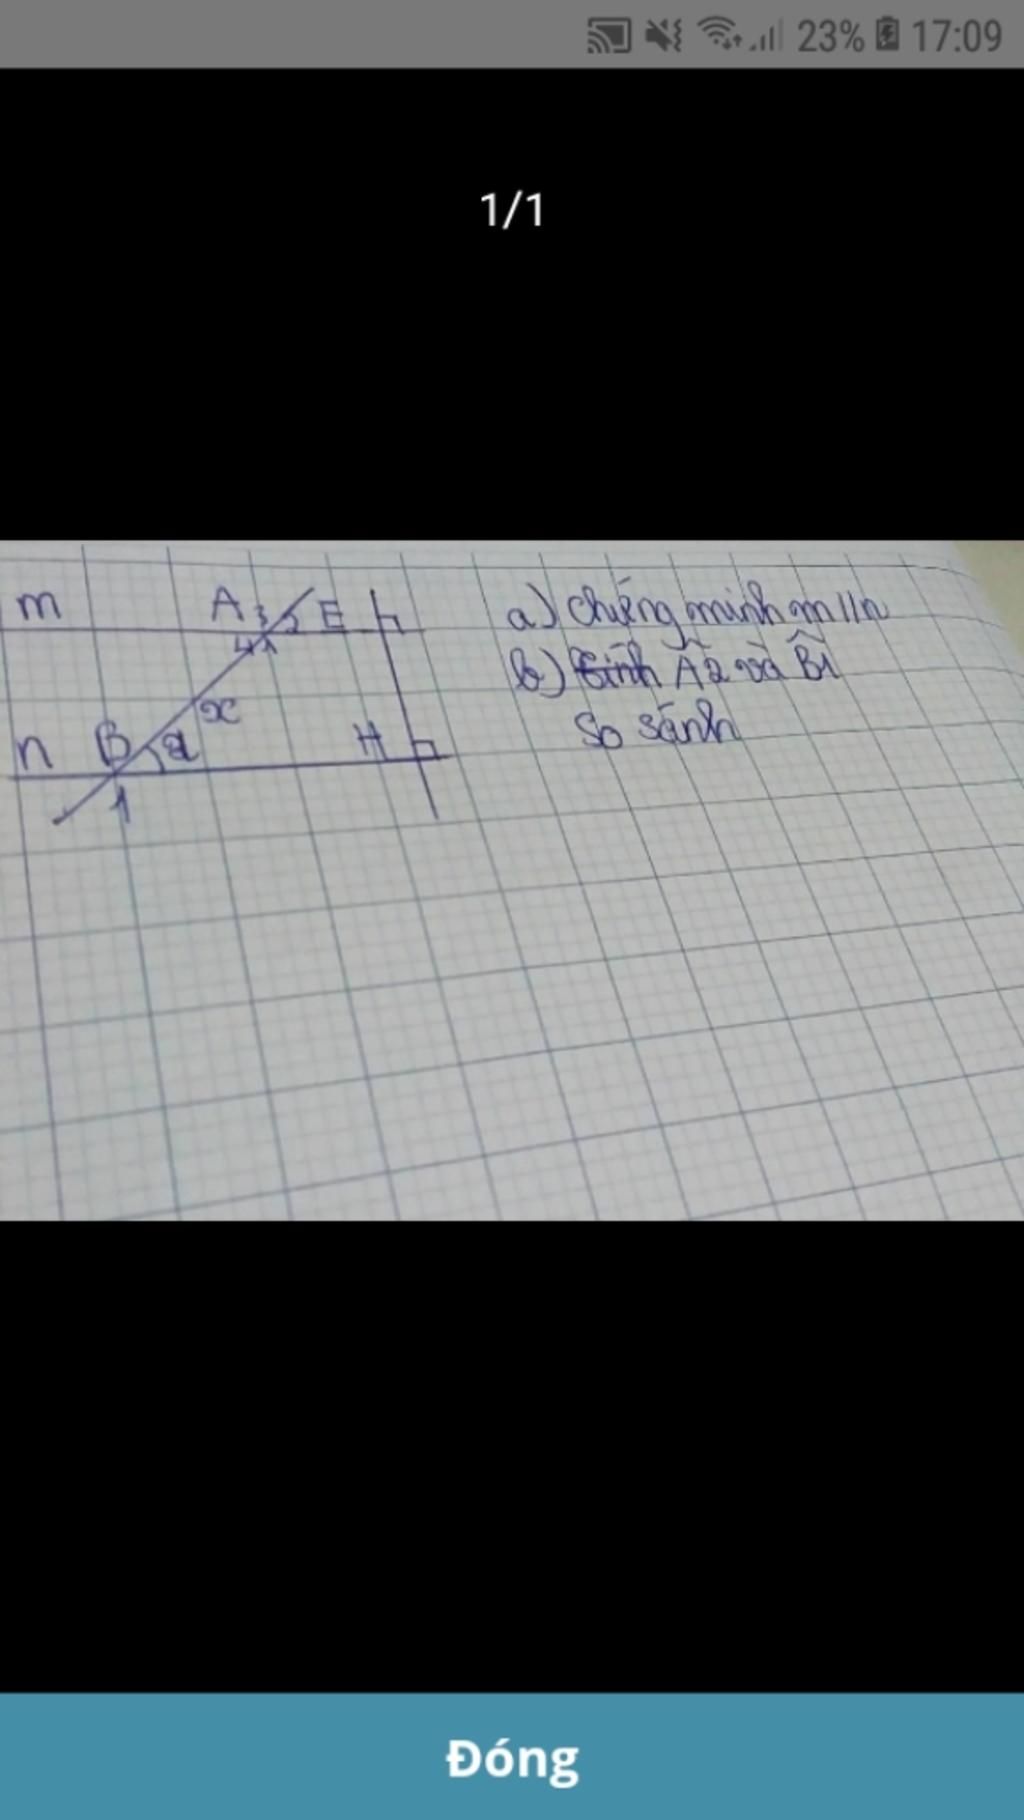 23% 17:09
1/1
m A 3 2 E
4 1
x
n B 2 H
1
a) chứng minh m//n
b) tính Â2 và B̂1
So sánh
Đóng